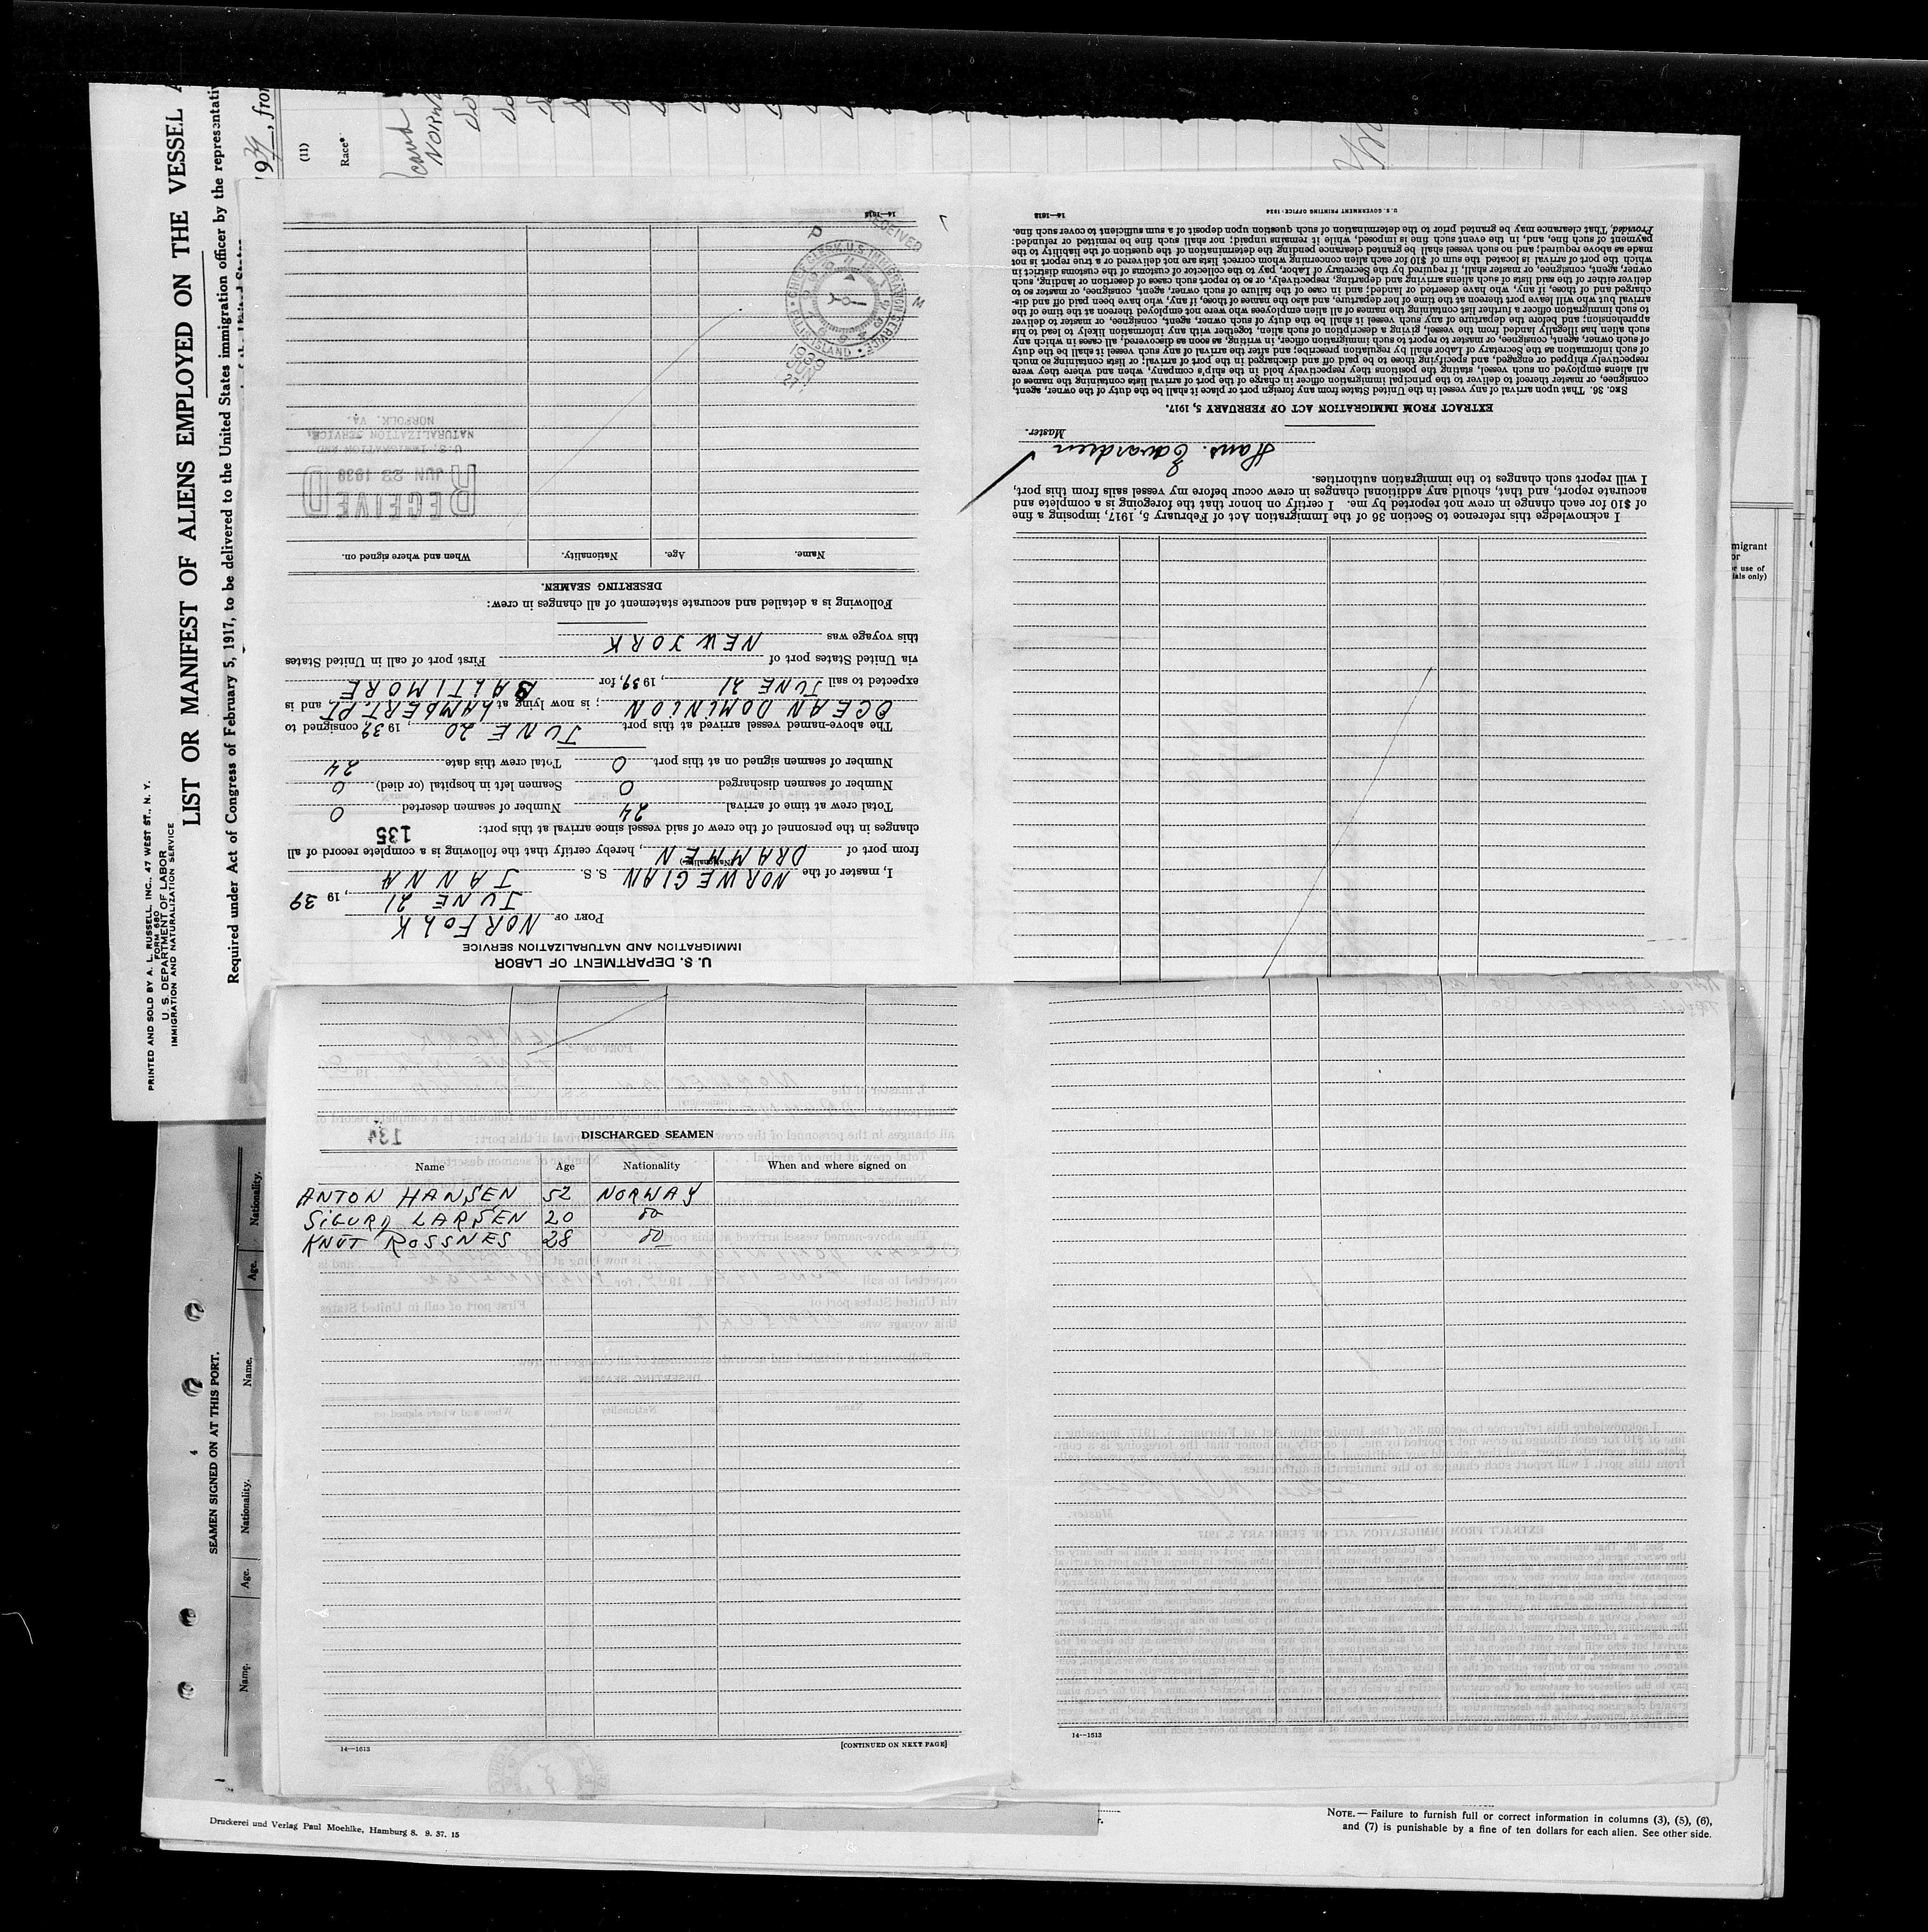 PRINTED AND SOLD BY A. L. RUSSELL, INC., 47 WEST ST., N. Y.
FORM 680
U. S. DEPARTMENT OF LABOR
IMMIGRATION AND NATURALIZATION SERVICE
LIST OR MANIFEST OF ALIENS EMPLOYED ON THE VESSEL
Required under Act of Congress of February 5, 1917, to be delivered to the United States immigration officer by the representativ
1939, from
(11)
Race*
U. S. DEPARTMENT OF LABOR
IMMIGRATION AND NATURALIZATION SERVICE
PORT OF NORFOLK
JUNE 21, 19 39
I, master of the NORWEGIAN S. S. JANNA
(Nationality)
from port of DRAMMEN, hereby certify that the following is a complete record of all
changes in the personnel of the crew of said vessel since arrival at this port: 135
Total crew at time of arrival 24 Number of seamen deserted 0
Number of seamen discharged 0 Seamen left in hospital (or died) 0
Number of seamen signed on at this port 0 Total crew this date 24
The above-named vessel arrived at this port JUNE 20, 1939, consigned to
OCEAN DOMINION; is now lying at LAMBERT PT. and is
expected to sail JUNE 21, 1939, for BALTIMORE
via United States port of First port of call in United States
this voyage was NEW YORK
Following is a detailed and accurate statement of all changes in crew:
DESERTING SEAMEN.
Name. Age. Nationality. When and where signed on.
RECEIVED
JUN 23 1939
U. S. IMMIGRATION AND
NATURALIZATION SERVICE,
NORFOLK, VA.
RECEIVED
CHIEF CLERK, U.S. IMMIGRATION SERVICE
ELLIS ISLAND
1939
JUN
27
P M
14—1613
I acknowledge this reference to Section 36 of the Immigration Act of February 5, 1917, imposing a fine
of $10 for each change in crew not reported by me. I certify on honor that the foregoing is a complete and
accurate report, and that, should any additional changes in crew occur before my vessel sails from this port,
I will report such changes to the immigration authorities.
Hans. Evardsen
Master.
EXTRACT FROM IMMIGRATION ACT OF FEBRUARY 5, 1917.
SEC. 36. That upon arrival of any vessel in the United States from any foreign port or place it shall be the duty of the owner, agent,
consignee, or master thereof to deliver to the principal immigration officer in charge of the port of arrival lists containing the names of
all aliens employed on such vessel, stating the positions they respectively hold in the ship's company, when and where they were
respectively shipped or engaged, and specifying those to be paid off and discharged in the port of arrival; or lists containing so much
of such information as the Secretary of Labor shall by regulation prescribe; and after the arrival of any such vessel it shall be the duty
of such owner, agent, consignee, or master to report to such immigration officer, in writing, as soon as discovered, all cases in which any
such alien has illegally landed from the vessel, giving a description of such alien, together with any information likely to lead to his
apprehension; and before the departure of any such vessel it shall be the duty of such owner, agent, consignee, or master to deliver
to such immigration officer a further list containing the names of all alien employees who were not employed thereon at the time of the
arrival but who will leave port thereon at the time of her departure, and also the names of those, if any, who have been paid off and dis-
charged and of those, if any, who have deserted or landed; and in case of the failure of such owner, agent, consignee, or master so to
deliver either of the said lists of such aliens arriving and departing, respectively, or so to report such cases of desertion or landing, such
owner, agent, consignee, or master shall, if required by the Secretary of Labor, pay to the collector of customs of the customs district in
which the port of arrival is located the sum of $10 for each alien concerning whom correct lists are not delivered or a true report is not
made as above required; and no such vessel shall be granted clearance pending the determination of the question of the liability to the
payment of such fine, and, in the event such fine is imposed, while it remains unpaid; nor shall such fine be remitted or refunded:
Provided, That clearance may be granted prior to the determination of such question upon deposit of a sum sufficient to cover such fine.
14—1613
U. S. GOVERNMENT PRINTING OFFICE: 1934
DISCHARGED SEAMEN
134
Name Age Nationality When and where signed on
ANTON HANSEN 52 NORWAY
SIGURD LARSEN 20 do
KNUT ROSSNES 28 do
14—1613
[CONTINUED ON NEXT PAGE]
14—1613
SEAMEN SIGNED ON AT THIS PORT.
Name. Age. Nationality. Name. Age. Nationality.
Druckerei und Verlag Paul Moehlke, Hamburg 8. 9. 37. 15
NOTE.— Failure to furnish full or correct information in columns (3), (5), (6),
and (7) is punishable by a fine of ten dollars for each alien. See other side.